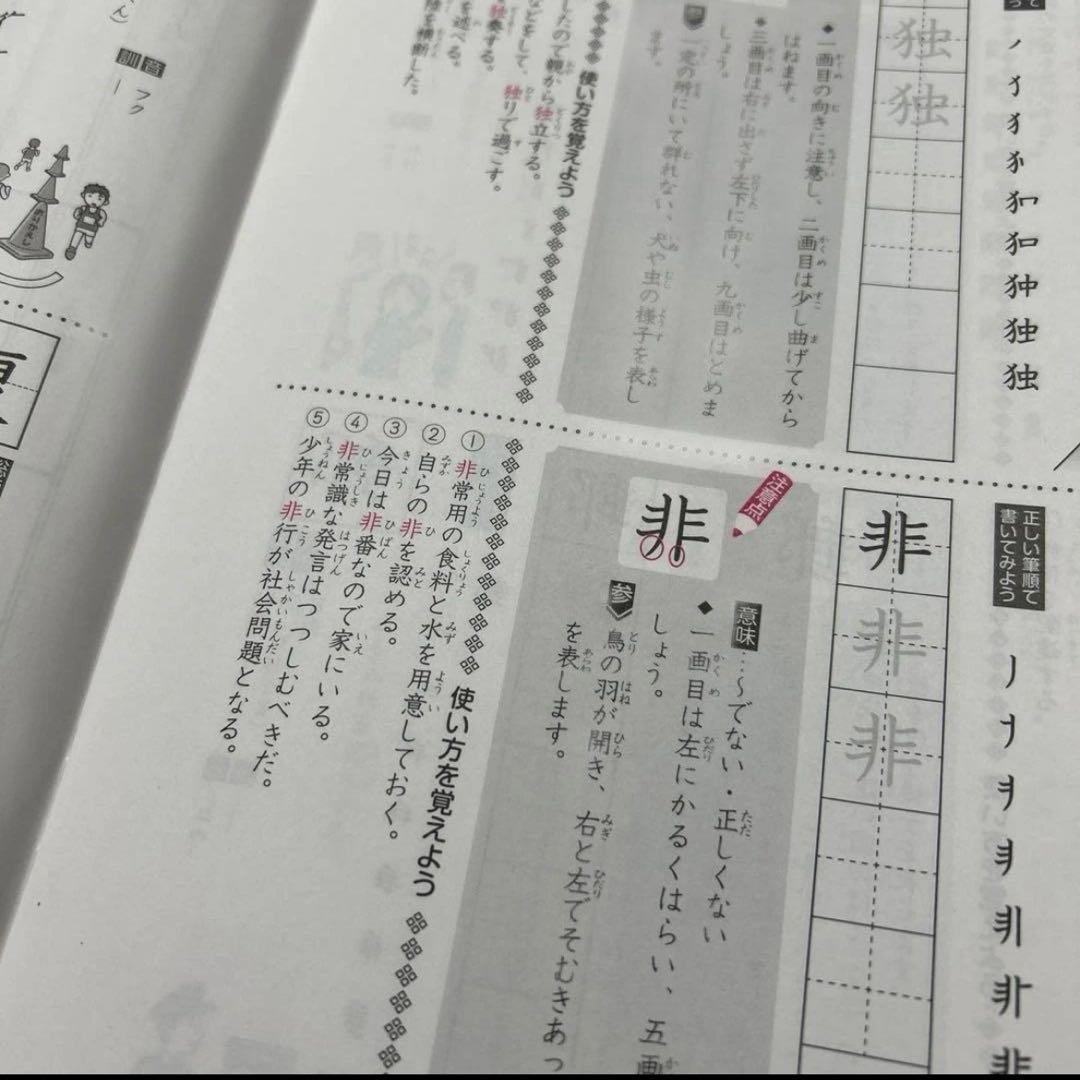 独
独
◆一画目の向きに注意し、二画目は少し曲げてから
はねます。
◆三画目は右に出さず左下に向け、九画目はとめま
しょう。
一定の所にいて群れない、犬や虫の様子を表し
ます。
使い方を覚えよう
したので親から独立する。
などをして、独りで過ごす。
独奏する。
を述べる。
陸を横断した。
音 フク
訓 ー
折りかえし
正しい筆順で
書いてみよう
非
非
非
注意点
非
意味…〜でない・正しくない
◆一画目は左にかるくはらい、五画
しょう。
参 鳥の羽が開き、右と左でそむきあっ
を表します。
使い方を覚えよう
①非常用の食料と水を用意しておく。
②自らの非を認める。
③今日は非番なので家にいる。
④非常識な発言はつつしむべきだ。
⑤少年の非行が社会問題となる。